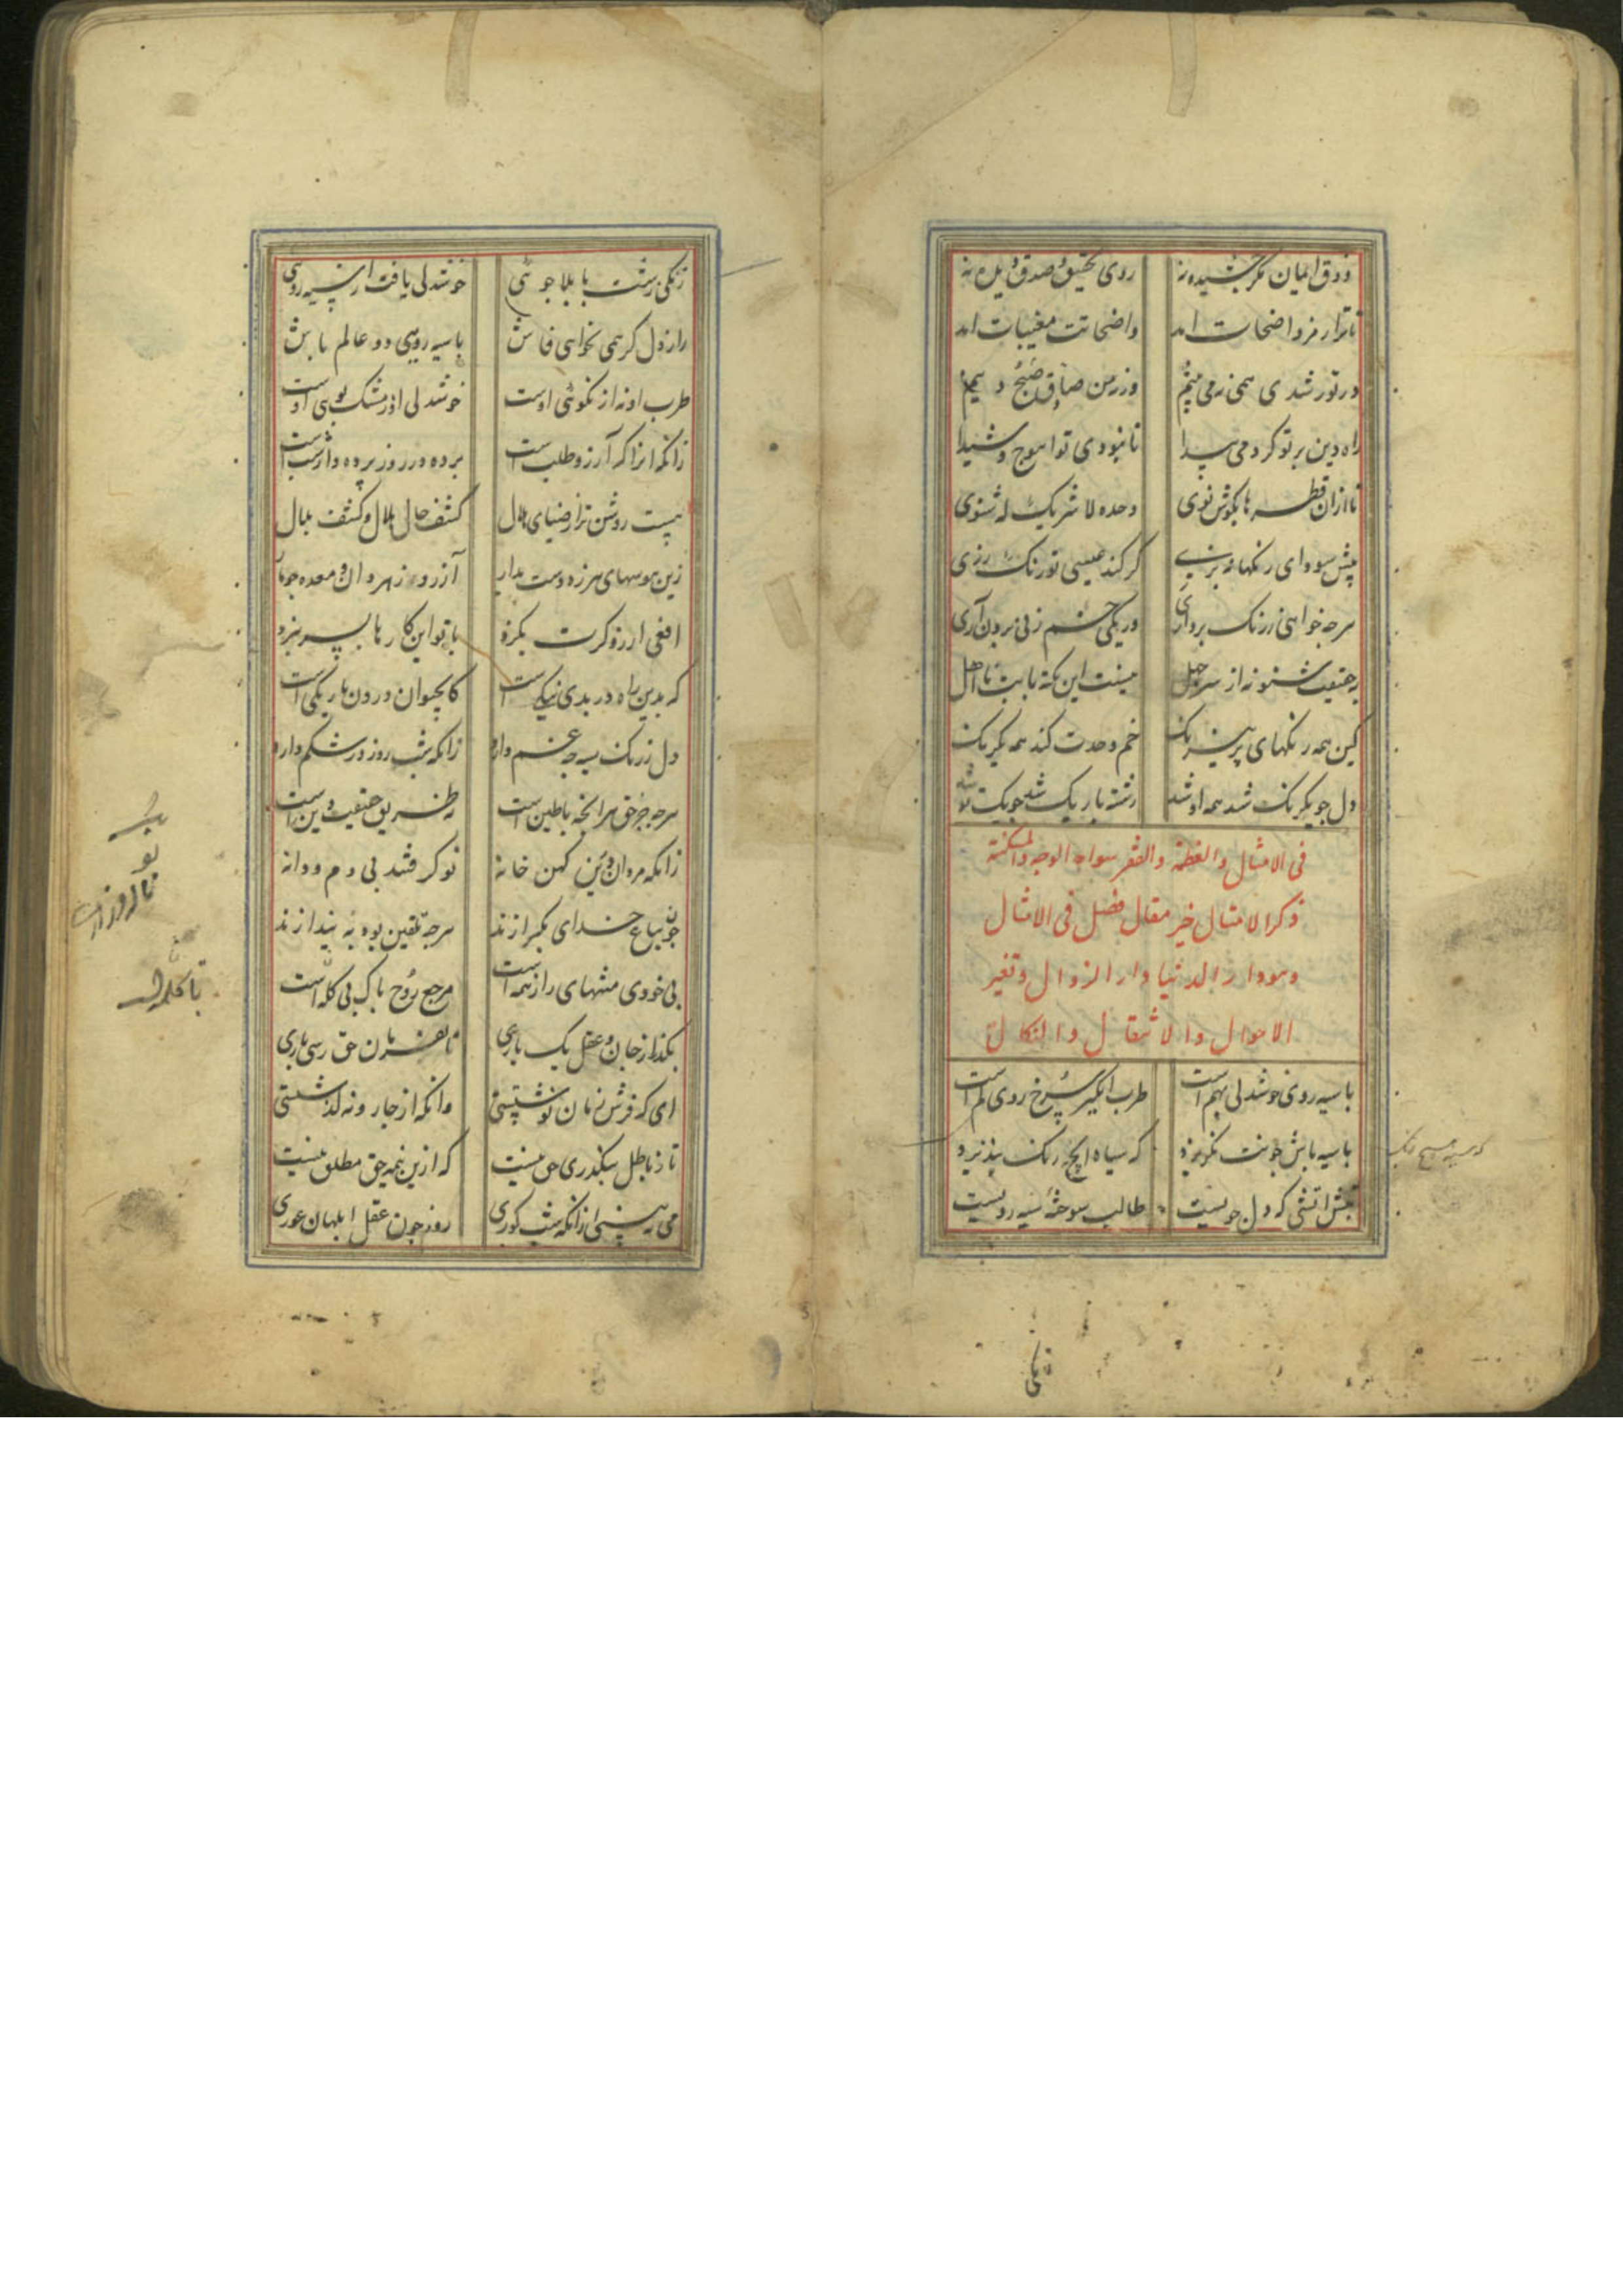 ذوق ایمان مکر چشیده نهٔ روی تحقیق و صدق دیده نهٔ
تا ترا رمز واضحات امد واضحاتت مغیبات امد
در تو رشدی همی نمی بینم ورز من صادق صبح دینم
راه دین بر تو کردمی پیدا تا نبودی تو ابوج و شیدا
تا ازان قطرها بکوش نوی وحده لا شریک له شنوی
پیش سودای رنکها نپزی کر کند عیسی تو رنک رزی
هرجه خواهی ز رنک برداری در یکی خم زنی برون آری
به حقیقت شنو نه از سر جهل نیست این نکته بابت نا اهل
کین همه رنکهای پر نیرنک خم وحدت کند همه یکرنک
دل جو یکرنک شد همه او شد رشته باریک شد جو یکتو شد
فی الامثال والغطة والفقر سواد الوجه والمسکنة
ذکر الامثال خیر مقال فصل فی الامثال
وهو دار الدنیا دار الزوال وتغیر
الاحوال والانتقال والنکال
با سیه روی خوشدلی بهم است طرب انکیز سرخ روی کم است
با سیه باش جونت نکزیرد که سیاه ایج رنک نپذیرد
جنبش اتشی که دل جویست طالب سوخته سیه رویست
زنکی
زنکی زشت با بلا جوئی خوشدلی یافت از سیه روی
راز دل کر همی نخواهی فاش با سیه رویی دو عالم باش
طرب او نه از نکوئی اوست خوشدلی او ز مشک بویی اوست
زانکه انرا که آرزو طلبست برده در روز پرده دار شبست
نیست روشن تر از ضیای هلال کشف حال بلال و کشف بلال
زین هوسهای هرزه دست بدار
افعی ارزو کرت بکزد با تو این کارها بسر نبرد
که بدین راه در بدی نیکیست کاب حیوان درون تاریکی است
دل ز رنک سیه جه غم دارد زانکه شب روز در شکم دارد
هرجه جز حق هر انجه باطین است ره طریق حقیقت دین است
زانکه مردان درین کهن خانه نو کرفتند بی دم و دانه
جون بباغ خدای بکرازند هرجه تلقین بود بیندازند
بی خودی منتهای راز همه است مرجع روح پاک بی کله است
بکذر از جان و عقل یک باری تا بفرمان حق رسی باری
ای که فرش زمان نوشتستی وانکه از جار و نه کذشتستی
تا ز باطل بنکذری حق نیست که ازین نیمه حق مطلق نیست
می نبینی ازانکه شب کوری روز جون عقل ابلهان عوری